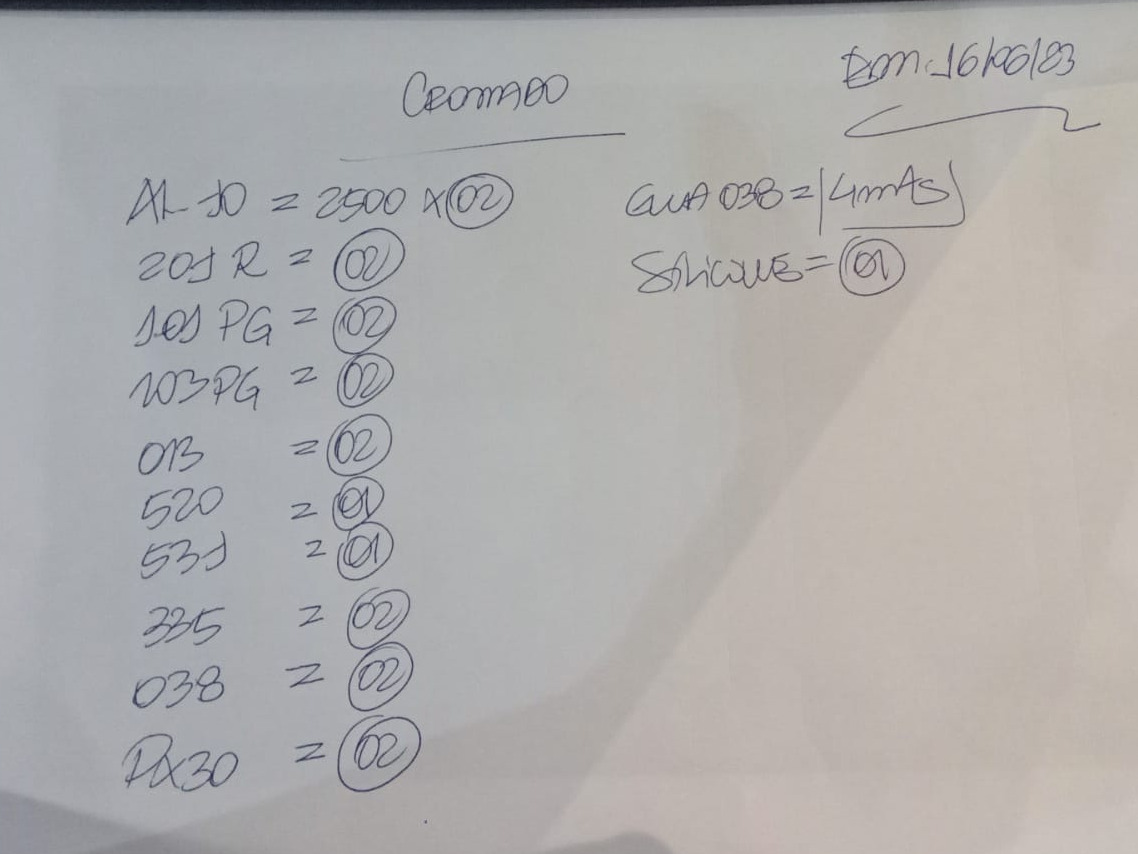 CROMADO
16/06/23
AL 10 = 2500 x 02
201 R = 02
101 PG = 02
103 PG = 02
013 = 02
520 = 01
531 = 01
335 = 02
038 = 02
PX30 = 02
GUIA 038 = 4 mAs
SILICONE = 01